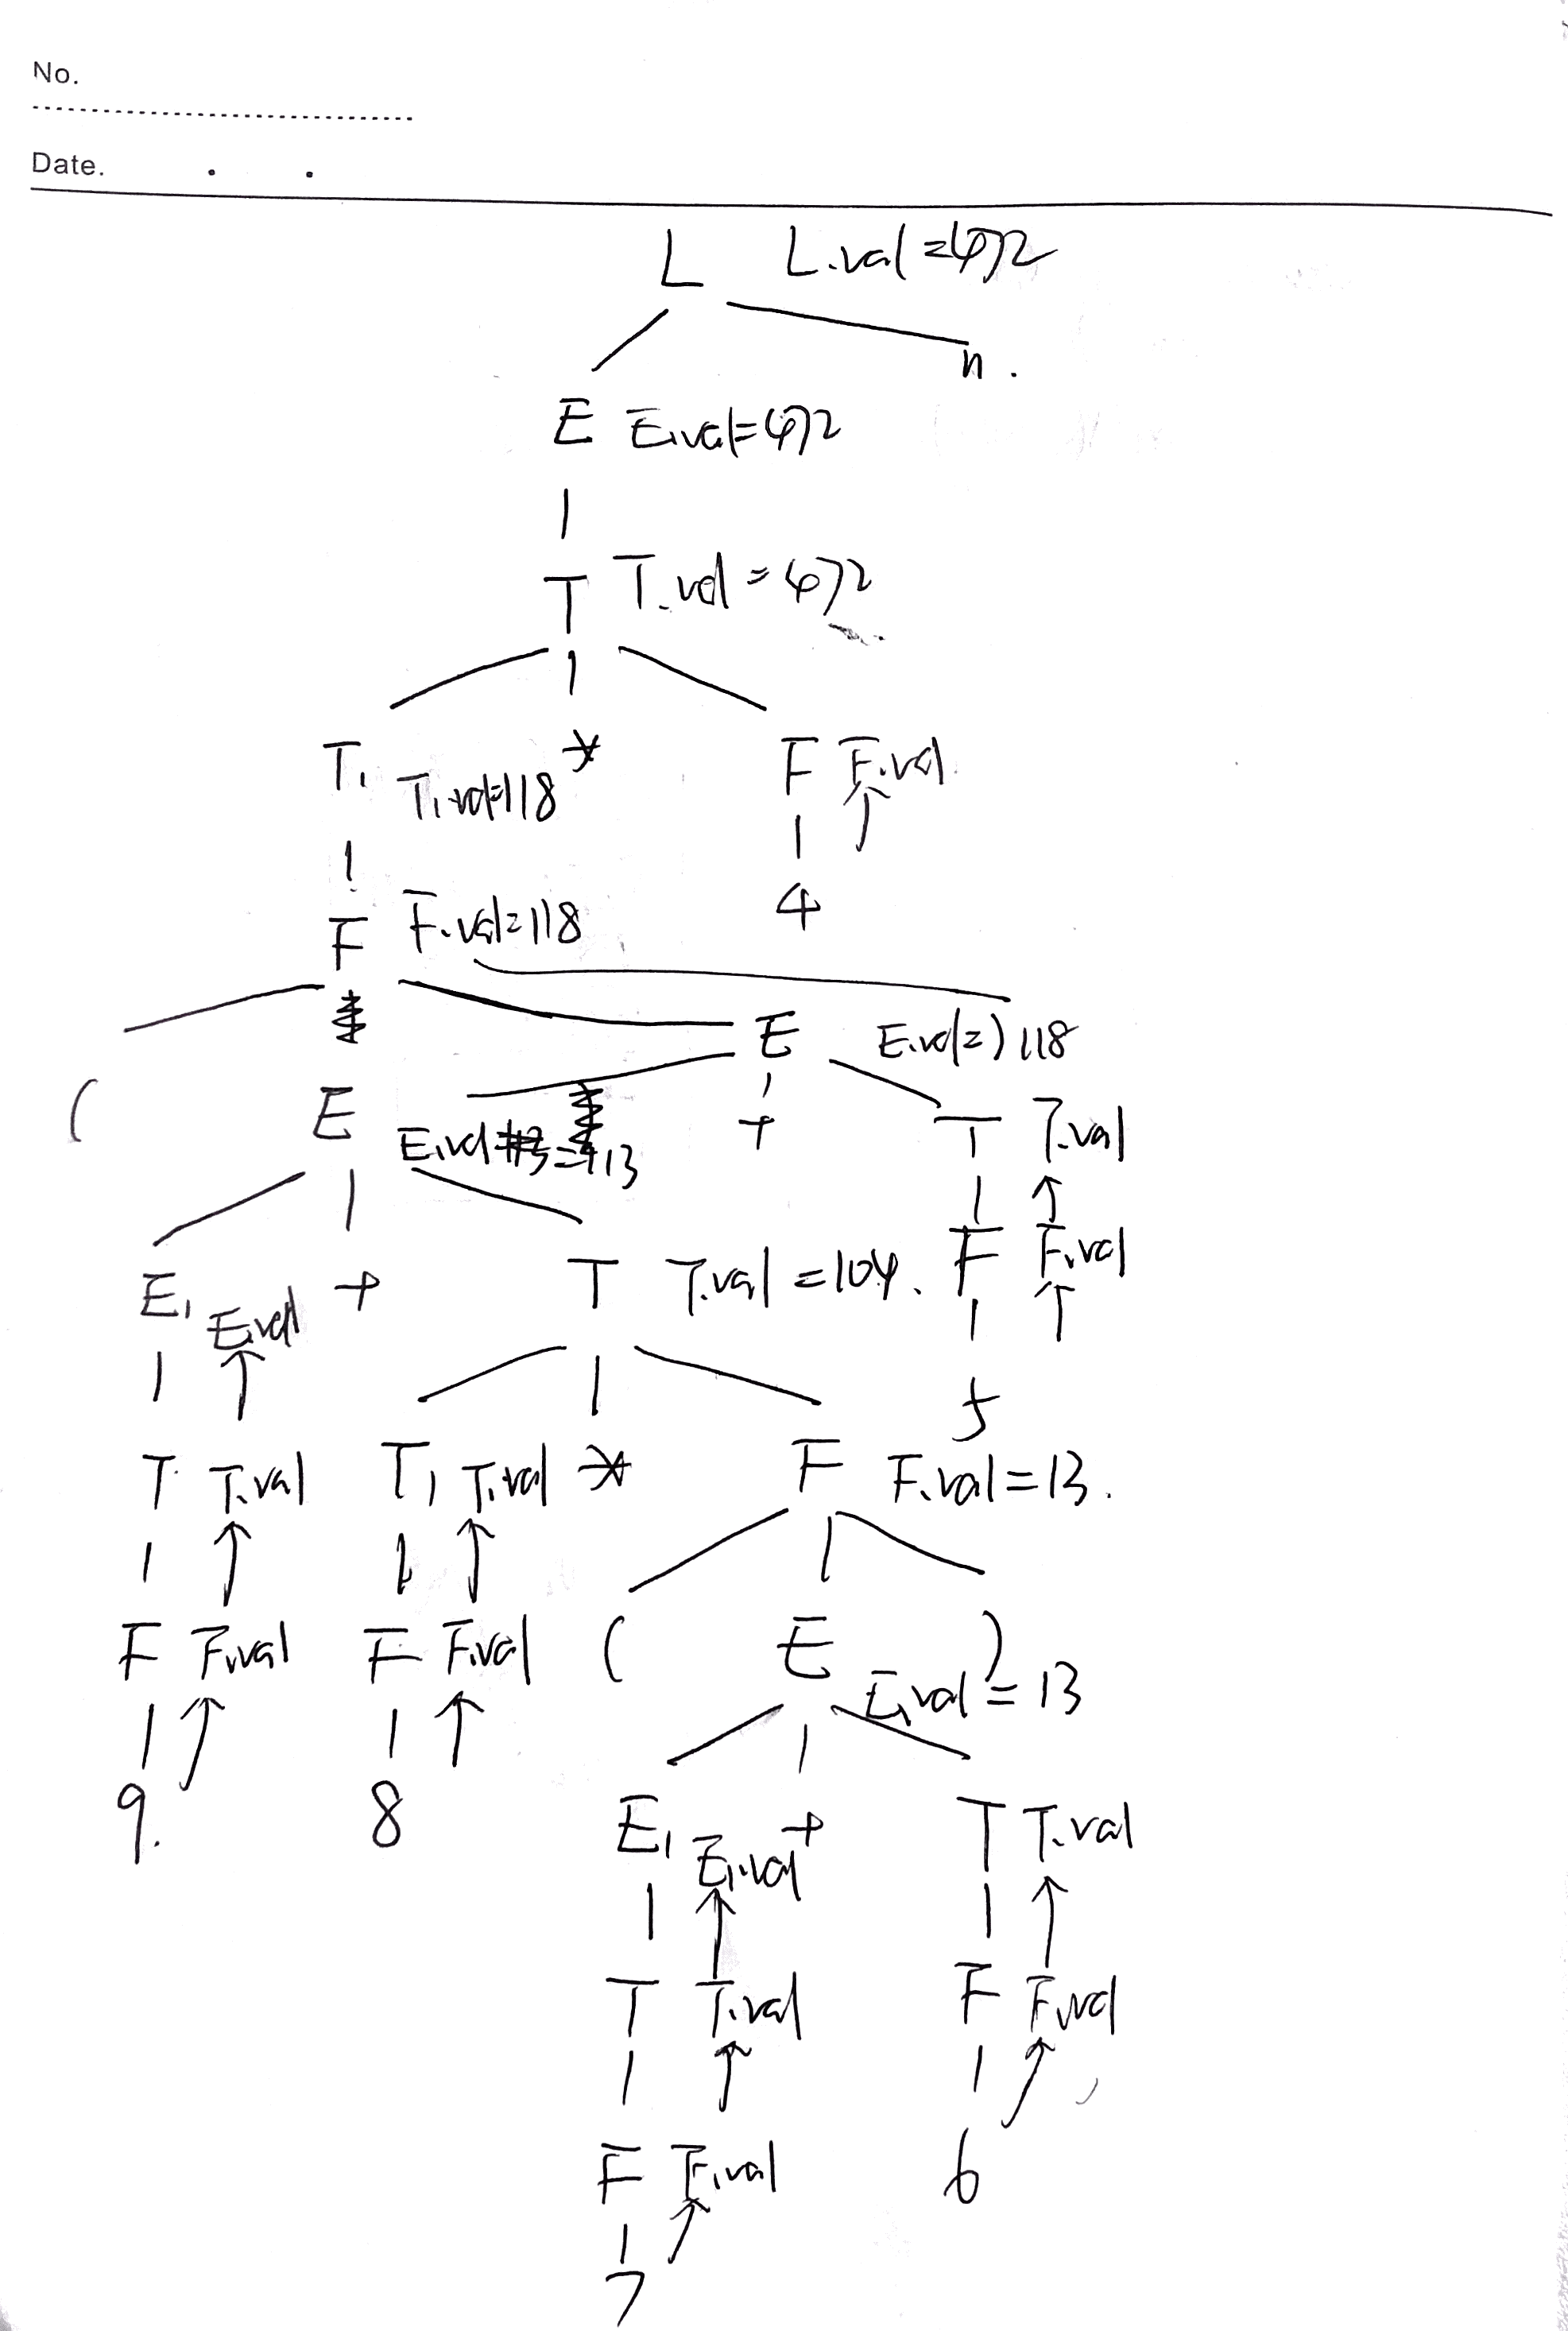 No.
Date. . .
L L.val=472
n.
E E.val=472
T T.val=472
T₁ T₁.val=118 * F F.val
F F.val=118 4
E E.val=) 118
( E E.val =113 + T T.val
E₁ E.val + T T.val=104. F F.val
5
T T.val T₁ T₁.val * F F.val=13.
F F.val F F.val ( E ) E.val=13
9. 8 E₁ E₁.val + T T.val
T T.val F F.val
F F.val 6
7